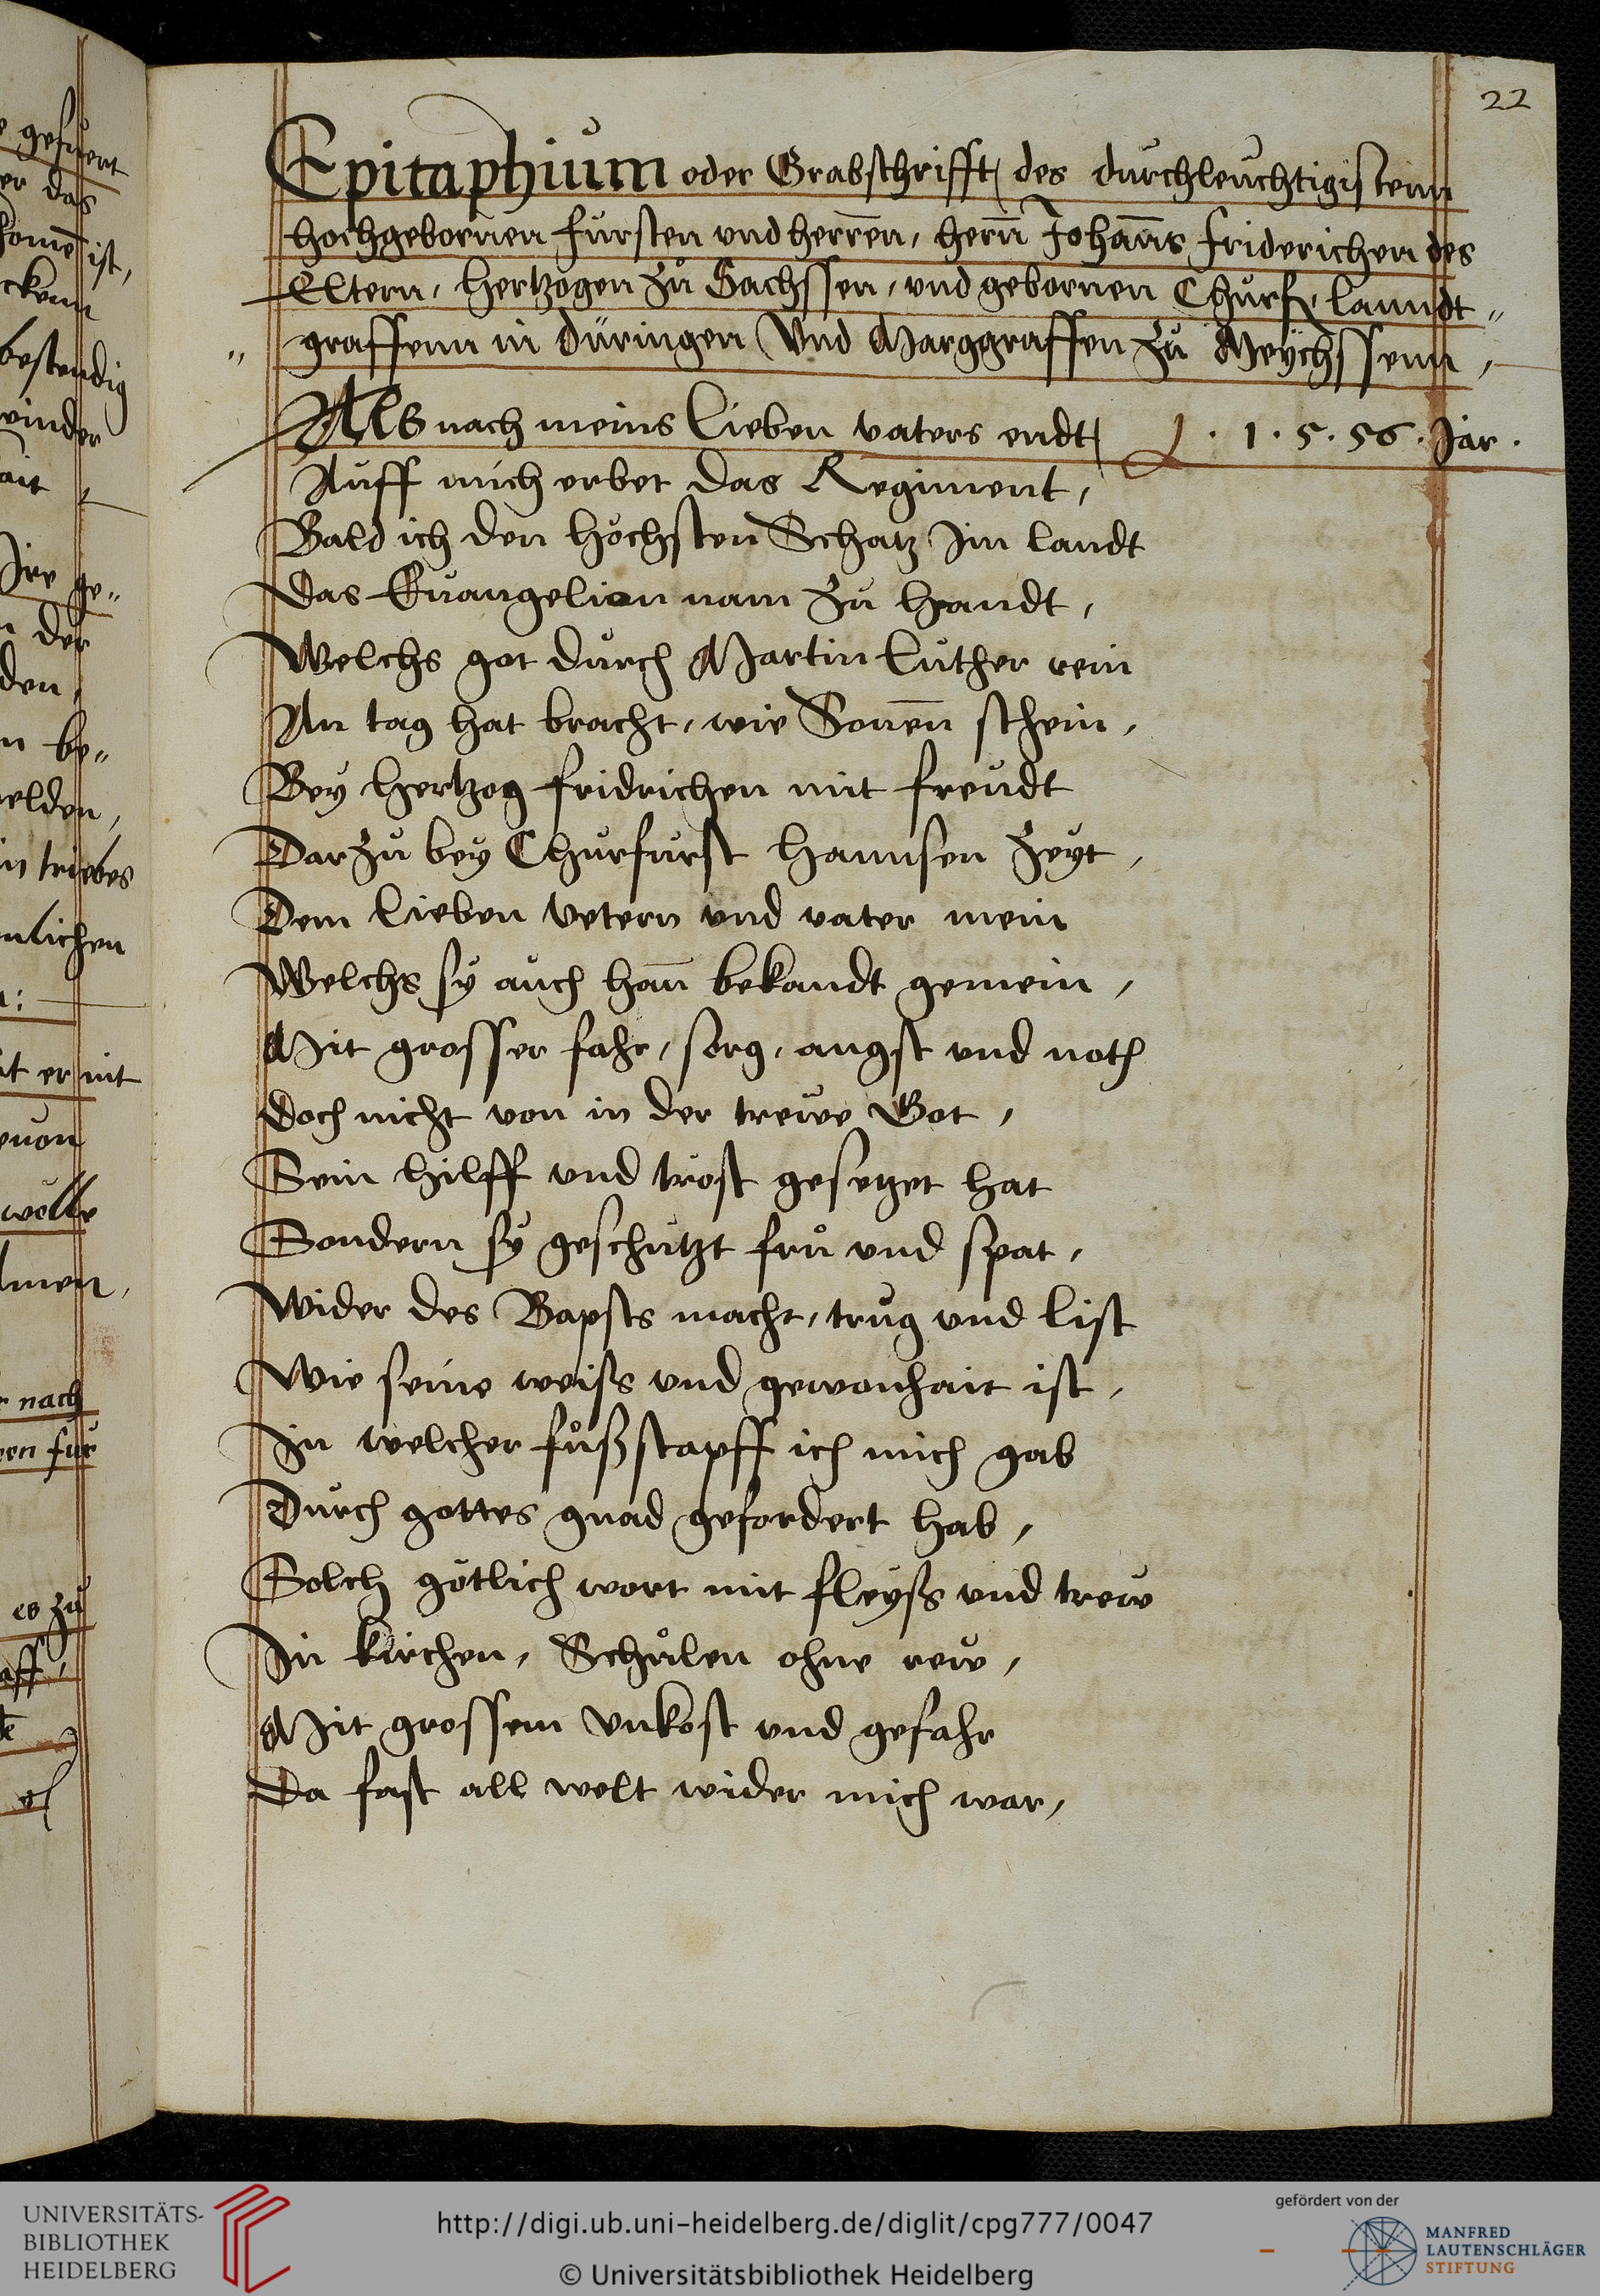 22
Epitaphium oder Grabschrifft des durchleuchtigistenn
hochgebornen fursten und herren, hern Johanns friderichen des
Eltern, hertzogen zu Sachssen, und gebornen Churf, lanndt„
„ graffenn in düringen Und Marggraffen zu Meychssenn,
Als nach meins lieben vaters endt 1.5.56. Jar.
Auff mich erbet das Regiment,
Bald ich den höchsten Schatz im landt
das Euangelion nam zu handt,
Welchs got durch Martin Luther rein
An tag hat bracht, wie Sonnen schein,
Bey hertzog fridrichen mit freudt
Darzu bey Churfurst hannsen zeyt,
Dem lieben vetern und vater mein
Welchs sy auch han bekandt gemein,
Mit grosser fahr, sorg, angst und noth
doch nicht von in der trewe Got,
Sein hilff und trost gesetzet hat
Sondern sy geschutzt fru und spat,
Wider des Bapsts macht, trug und list
Wie seine weiss und gewonhait ist,
In welcher fußstapff ich mich gab
Durch gottes gnad gefordert hab,
Solch götlich wort mit fleyss und trew
In kirchen, Schulen ohne rew,
Mit grossem Unkost und gefahr
Da fast all welt wider mich war,
gefuert
er das
ist,
bestendig
ge„
der
den,
be„
er nit
nach
zu
UNIVERSITÄTS-
BIBLIOTHEK
HEIDELBERG
http://digi.ub.uni-heidelberg.de/diglit/cpg777/0047
© Universitätsbibliothek Heidelberg
gefördert von der
MANFRED
LAUTENSCHLÄGER
STIFTUNG